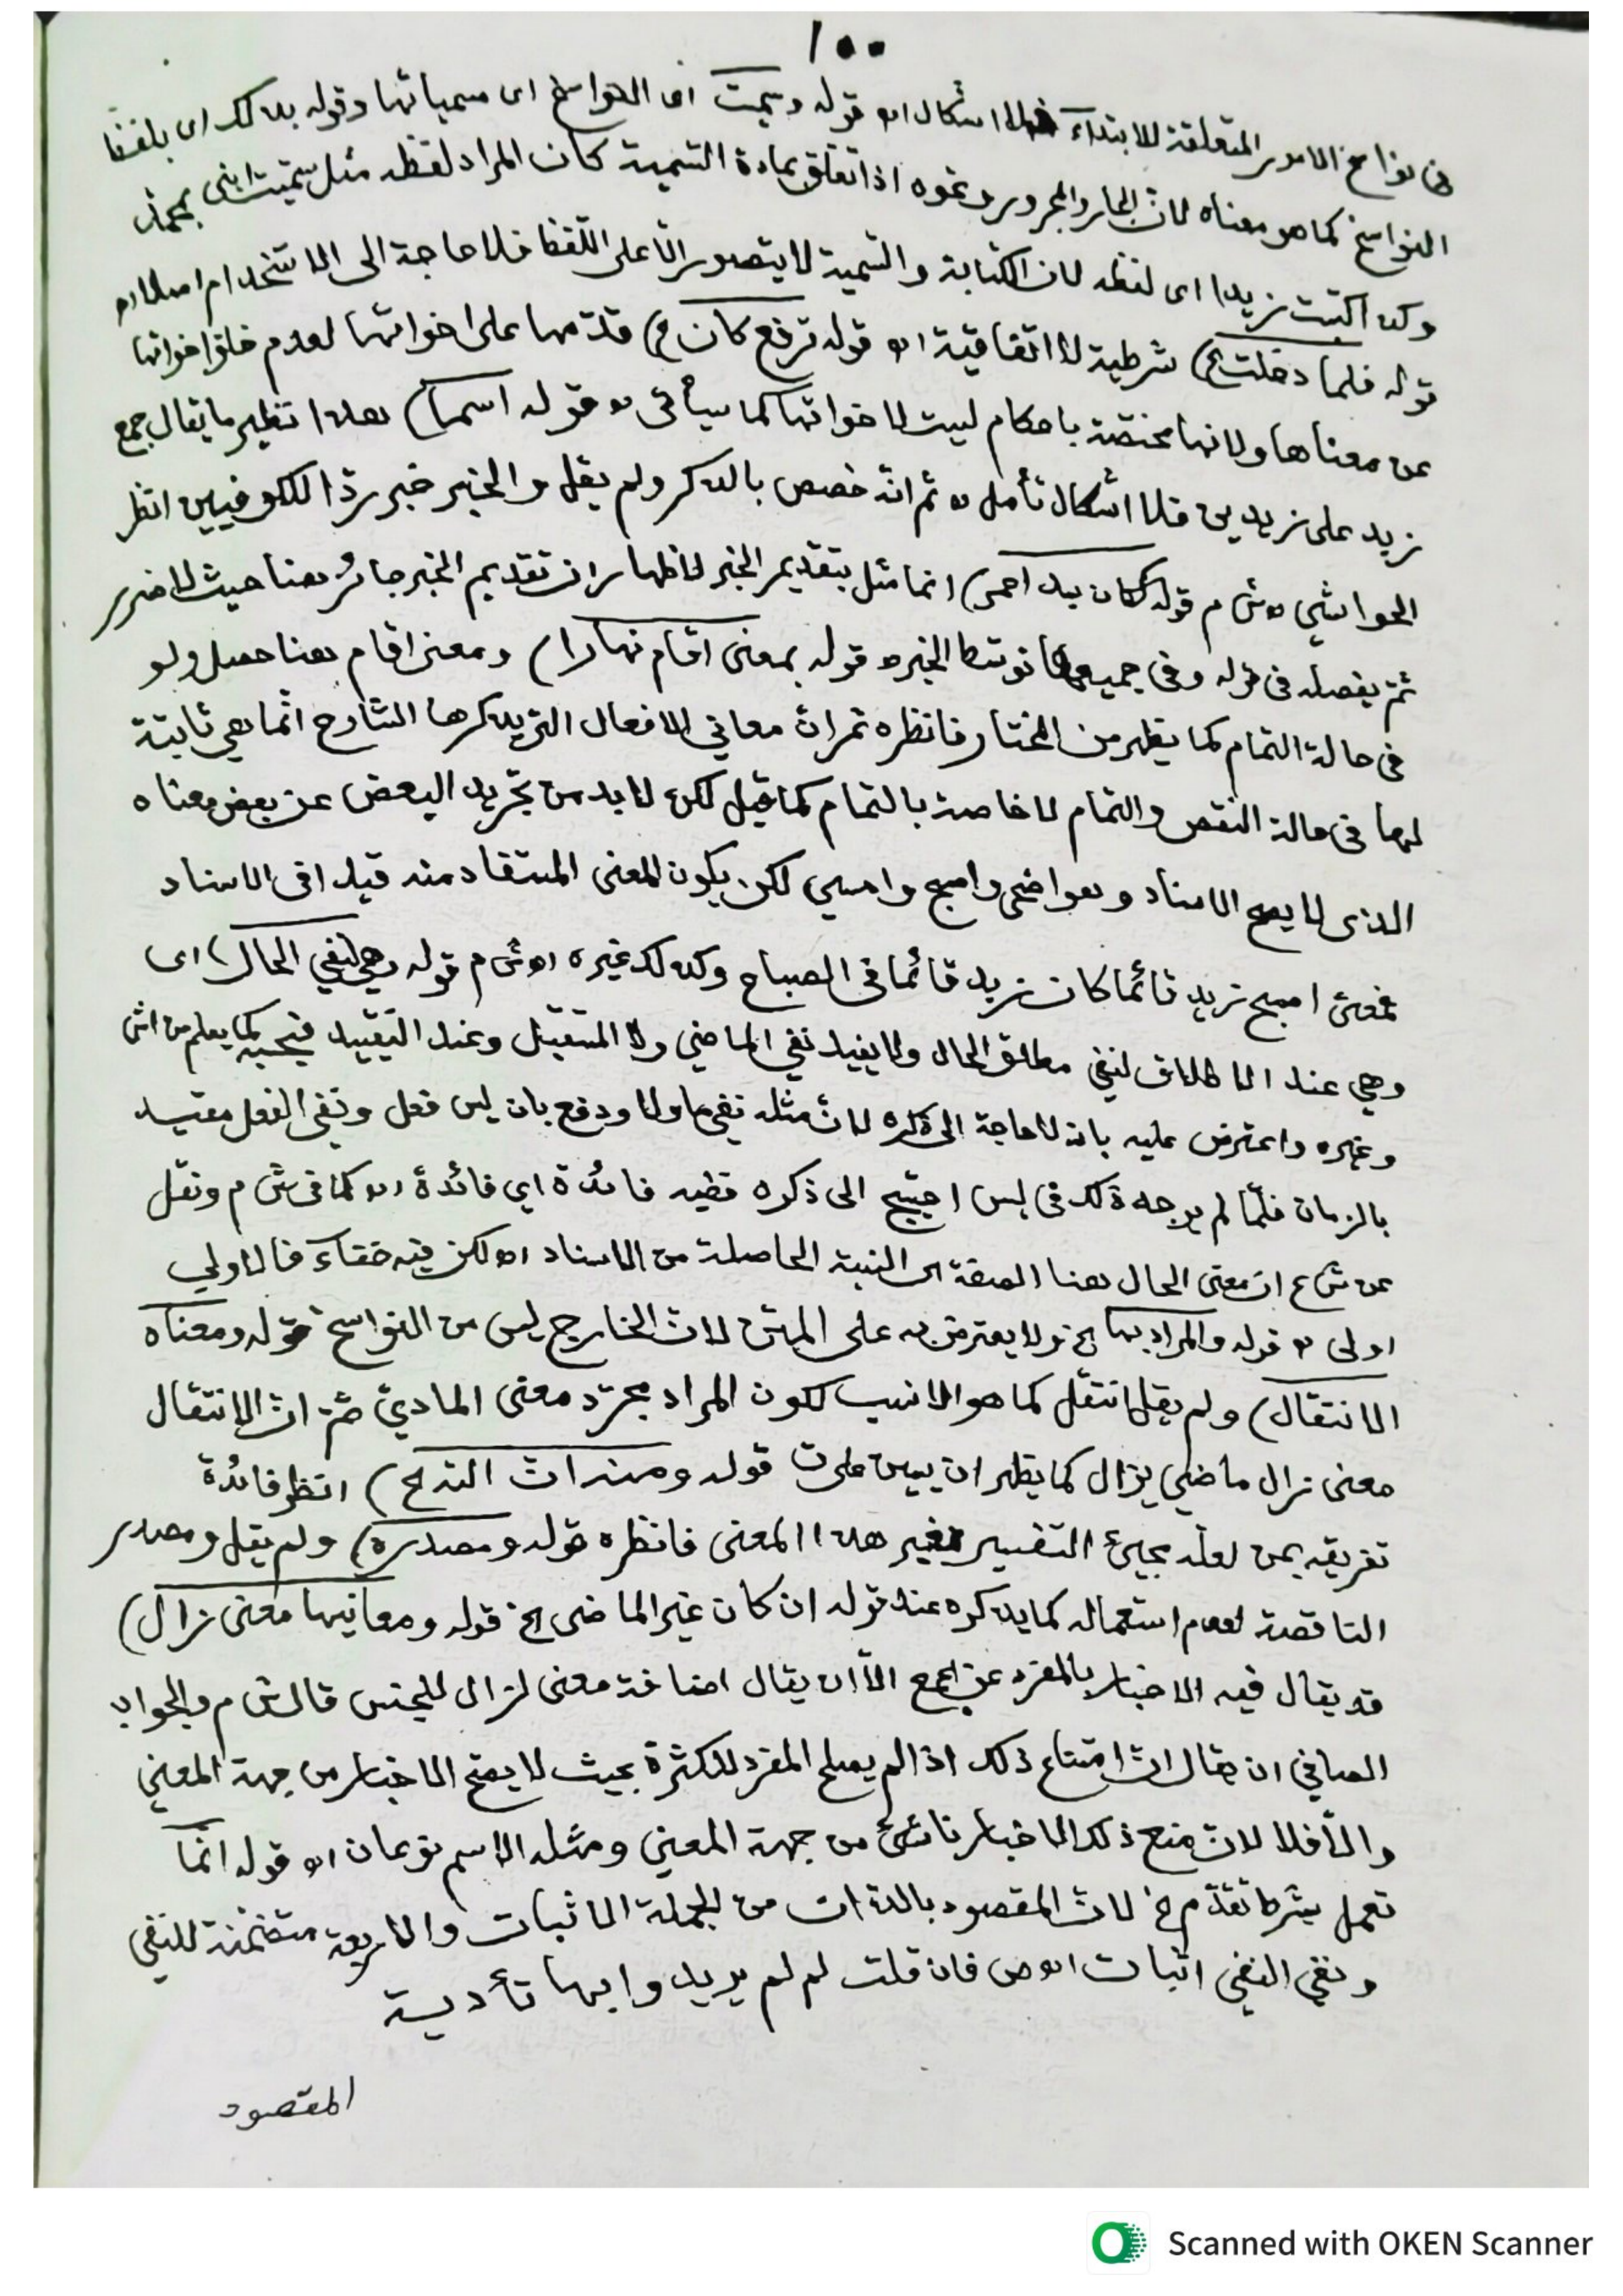 ١٠٠
المتعلقة للابتداء فلا اشكال اه قوله وسميت اى النواسخ اى مسمياتها وقوله بذلك اى بلفظ
النواسخ كما هو معناه لان الجار والمجرور ونحوه اذا تعلق بمادة التسمية كان المراد لفظه مثل سميت ابنى بمحمد
وكذا كتبت زيدا اى لفظه لان الكتابة والتسمية لا يتصور الا على اللفظ فلا حاجة الى الاستخدام اصلا اه م
قوله فلما دخلت الخ) شرطية لا اتفاقية اه قوله ترفع كان الخ) قدمها على اخواتها لعدم خلو اخواتها
عن معناها ولانها مختصة باحكام ليست لاخواتها كما سيأتى اه قوله اسما) هذا نظير ما يقال جمع
زيد على زيدين فلا اشكال تأمل اه ثم انه خصص بالذكر ولم يقل والخبر خبر ردا للكوفيين انظر
الحواشي اه ش م قوله ككان سيدا عمر) انما مثل بتقديم الخبر لاظهار ان تقديم الخبر جائز هنا حيث لا ضرر
ثم يفصله فى قوله وفى جميعها توسط الخبر اه قوله بمعنى اقام نهارا) ومعنى اقام هنا حصل ولو
فى حالة التمام كما يظهر من المختار فانظره ثم ان معاني الافعال التى يذكرها الشارح انما هي ثابتة
لها فى حالة النقص والتمام لا خاصة بالتمام كما قيل لكن لا بد من تجريد البعض عن بعض معناه
الذى لا يصح الاسناد وهو اضحى واصبح وامسي لكن يكون المعنى المستفاد منه قيدا فى الاسناد
فمعنى اصبح زيد قائما كان زيد قائما فى الصباح وكذلك غيره اه ش م قوله وهي لنفي الحال) اى
وهي عند الاطلاق لنفي مطلق الحال ولا يفيد نفي الماضي ولا المستقبل وعند التقييد فبحسبه كما يعلم من اش
وغيره واعترض عليه بانه لا حاجة الى ذكره لان مثله نفي ما ولا ودفع بان ليس فعل ونفى الفعل مقيد
بالزمان فلما لم يوجد ذلك فى ليس احتيج الى ذكره ففيه فائدة اي فائدة اه كما فى ش م ونقل
عن ش ع ان معنى الحال هنا الصفة اى النسبة الحاصلة من الاسناد اه لكن فيه خفاء فالاولي
اولى اه قوله والمراد بها الخ ولا يعترض به على المتن لان الخارج ليس من النواسخ قوله ومعناه
الانتقال) ولم يقل انتقل كما هو الانسب لكون المراد مجرد معنى المادي ثم ان الانتقال
معنى زال ماضي يزال كما يظهر ان يبين قوله ومنذات الخ) انظر فائدة
تفريقه بمن لعله بمجيئ التفسير بغير هذا المعنى فانظره قوله ومصدره) ولم يقل ومصدر
الناقصة لعدم استعماله كما يذكره عند قوله ان كان غير الماضى الخ قوله ومعانيها معنى زال)
قد يقال فيه الاخبار بالمفرد عن الجمع الا ان يقال اضافة معنى لزال للجنس قال ش م والجواب
الصافي ان يقال ان امتناع ذلك اذا لم يصلح المفرد للكثرة بحيث لا يصح الاخبار من جهة المعنى
والا فلا لان منع ذلك الاخبار ناشئ من جهة المعنى ومثله الاسم نوعان اه قوله انما
تعمل بشرط تقدم الخ لان المقصود بالذات من الجملة الاثبات والاربعة متضمنة للنفى
ونفي النفي اثبات اه ص فان قلت لم لم يريدوا بها تأدية
المقصود
Scanned with OKEN Scanner